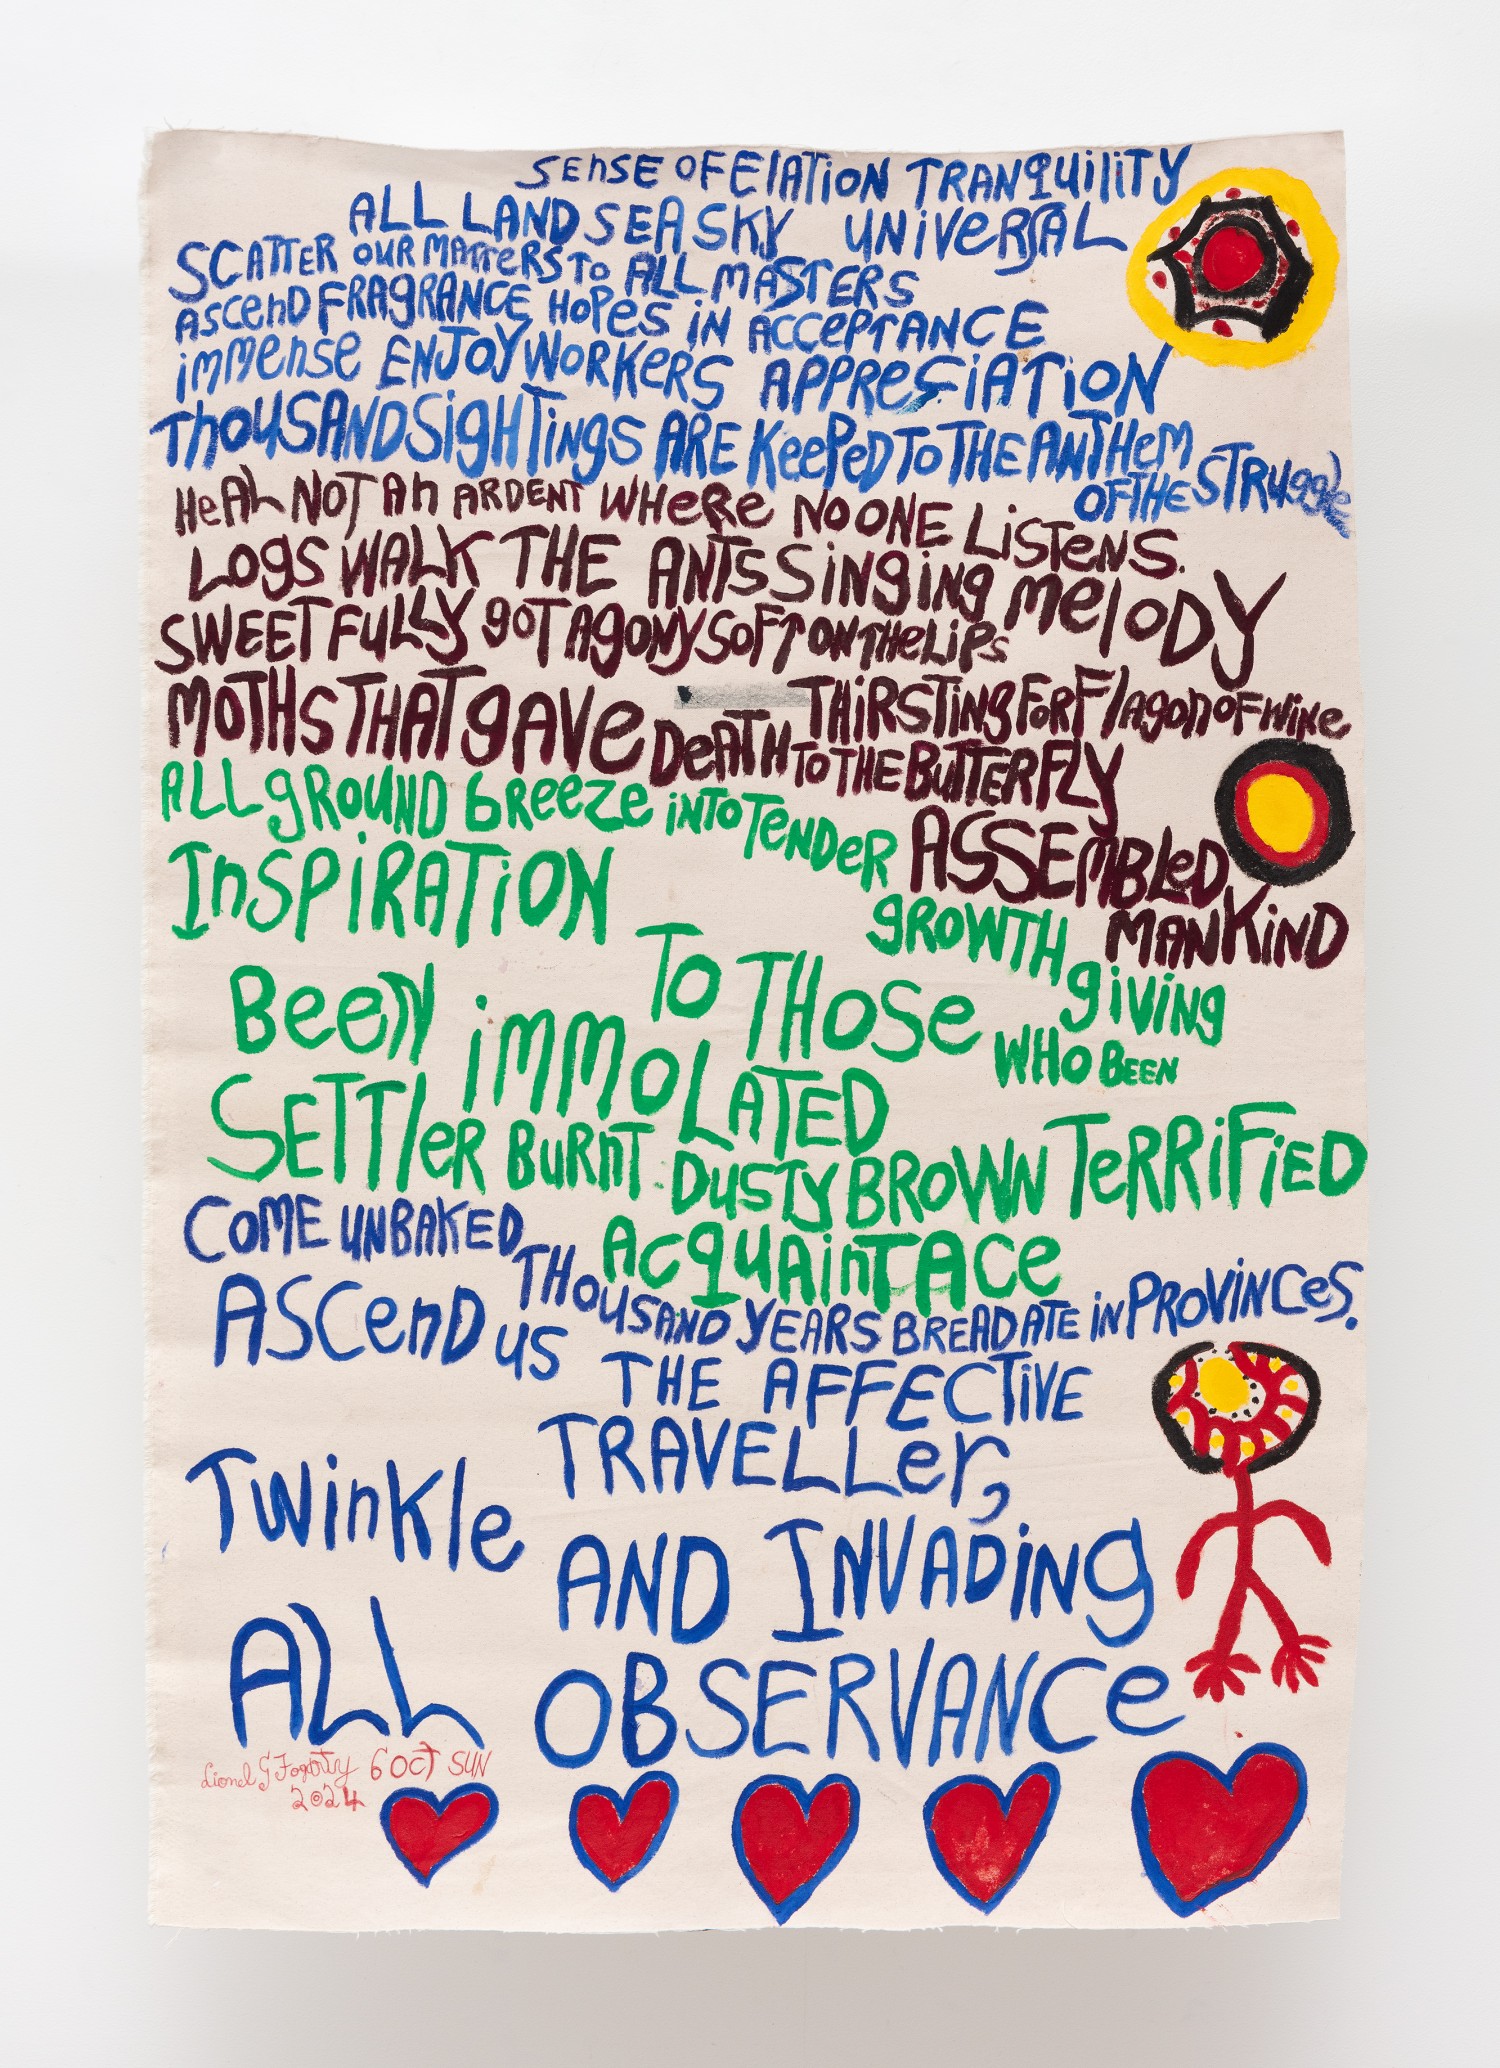 SENSE OF ElATiON TRANQUiliTY
ALL LAND SEA SKY UNiVERSAL
SCATTER OUR MATTERS TO ALL MASTERS
ASCEND FRAGRANCE HOPES IN ACCEPTANCE
immense ENJOY WORKERS APPRESiATiON
THOUSAND SiGHTiNGS ARE KeePeD TO THE ANTHEM
OF THE STRUGGLE
HEAL NOT An ARDENT WHERE NO ONE LiSTENS.
LOGS WALK THE ANTS SiNGiNG MElODY
SWEETFULLY GOT AGONY SOFT ON THE LiPS
MOTHS THAT GAVE DEATH TO THE BUTTERFLY
THiRSTiNG FOR FlAGON OF WiNE
ASSEMBLED MANKiND
ALL GROUND BREEZE iNTO TENDER
INSPiRATiON
GROWTH GiViNG
TO THOSE WHO BEEN
BEEN iMMOLATED
SETTlER BURNT DUSTY BROWN TERRiFiED
ACQUAiNTACE
COME UNBAKED
THOUSAND YEARS BREAD ATE iN PROViNCES.
ASCEND US
THE AFFECTiVE
TRAVELLER,
TWiNKlE
AND INVADiNG
ALL
OBSERVANCE
Lionel G Fogarty 6 OCT SUN
2024